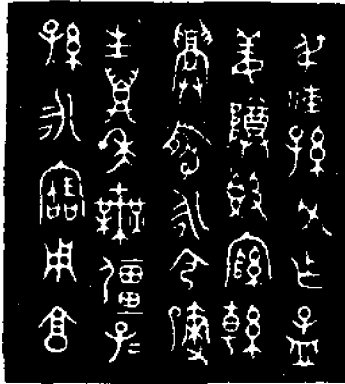 叔孫父乍孟
姜尊簋綰綽
眉壽永令彌
生萬年無疆子
孫永寶用享